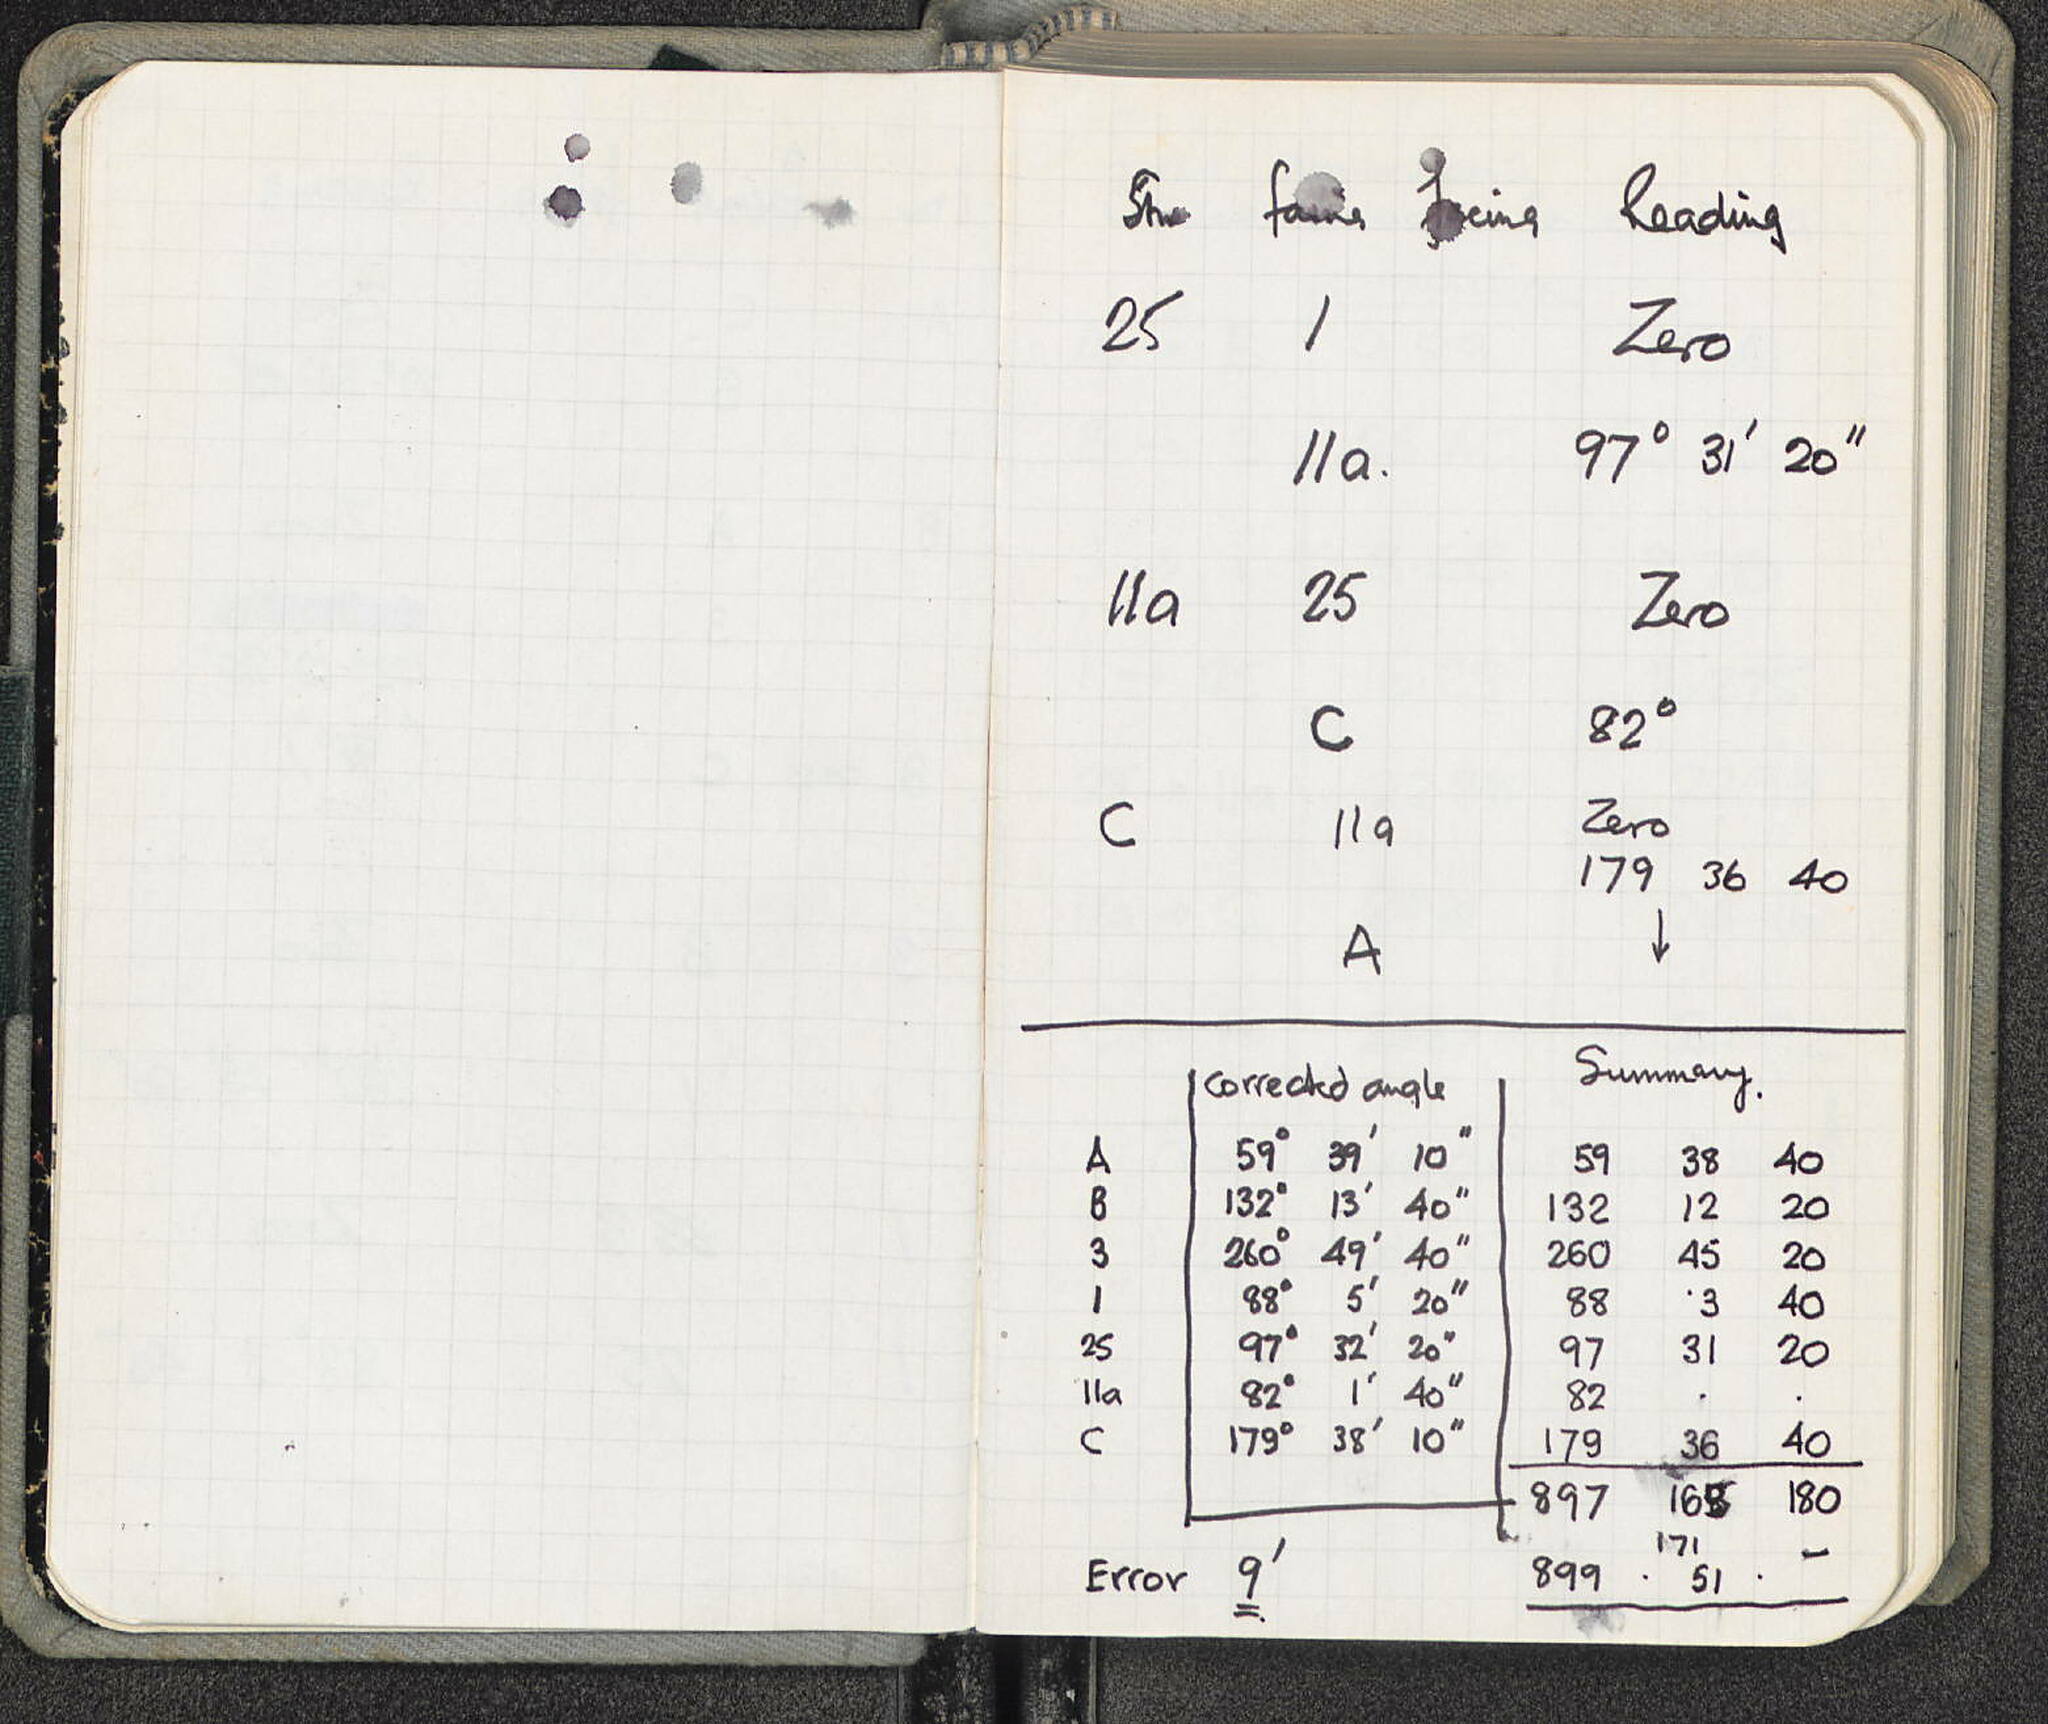 Stn facing facing Reading
25 1 Zero
11a. 97° 31' 20"
11a 25 Zero
C 82°
C 11a Zero
179 36 40
A ↓
corrected angle Summary.
A 59° 39' 10" 59 38 40
B 132° 13' 40" 132 12 20
3 260° 49' 40" 260 45 20
1 88° 5' 20" 88 ·3 40
25 97° 32' 20" 97 31 20
11a 82° 1' 40" 82 · ·
C 179° 38' 10" 179 36 40
897 168 180
171 –
Error 9' 899 · 51 ·